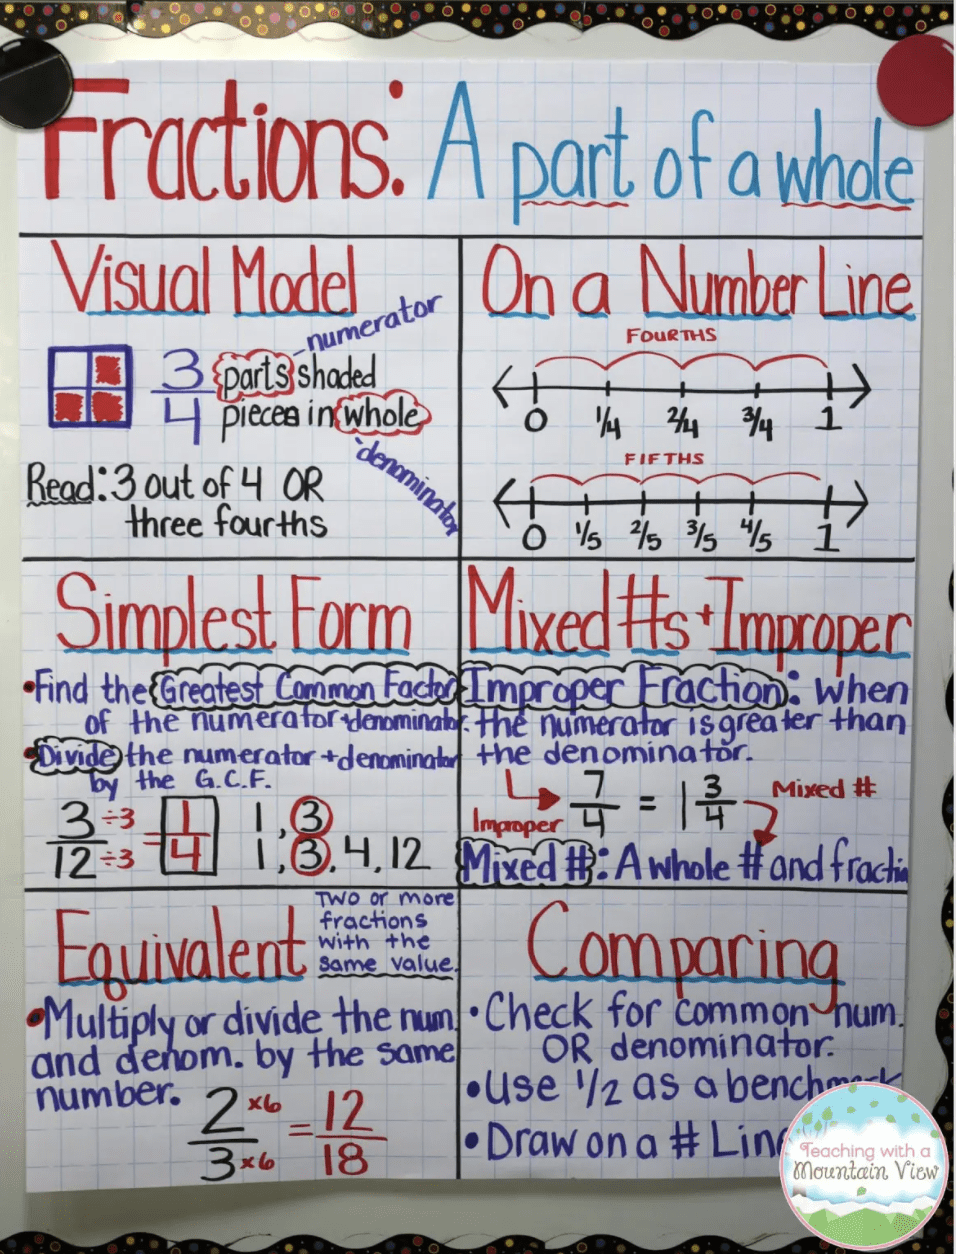 Fractions: A part of a whole
Visual Model
numerator
3/4 parts shaded
pieces in whole
denominator
Read: 3 out of 4 OR
three fourths
On a Number Line
FOURTHS
0 1/4 2/4 3/4 1
FIFTHS
0 1/5 2/5 3/5 4/5 1
Simplest Form
• Find the Greatest Common Factor
of the numerator + denominator.
• Divide the numerator + denominator
by the G.C.F.
3 ÷3 = 1 1, 3
12 ÷3 4 1, 3, 4, 12
Mixed #s + Improper
Improper Fraction: When
the numerator is greater than
the denominator.
Improper 7/4 = 1 3/4 Mixed #
Mixed #: A whole # and fractio
Equivalent
Two or more
fractions
with the
same value.
• Multiply or divide the num.
and denom. by the same
number.
2 ×6 = 12
3 ×6 18
Comparing
• Check for common num.
OR denominator.
• Use 1/2 as a benchmark
• Draw on a # Line
Teaching with a
Mountain View